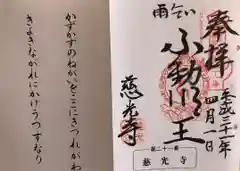 奉拝
平成三十一年四月一日
雨乞
不動明王
慈光寺
第二十一番
慈光寺
かずかずのねがいをここにきつれがわ
きよきながれにかけうつすなり